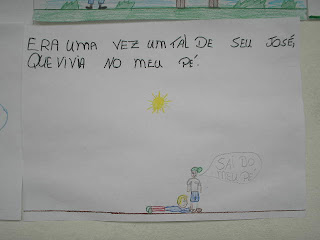 ERA UMA VEZ UM TAL DE SEU JOSÉ,
QUE VIVIA NO MEU PÉ.
SAI DO
MEU PÉ